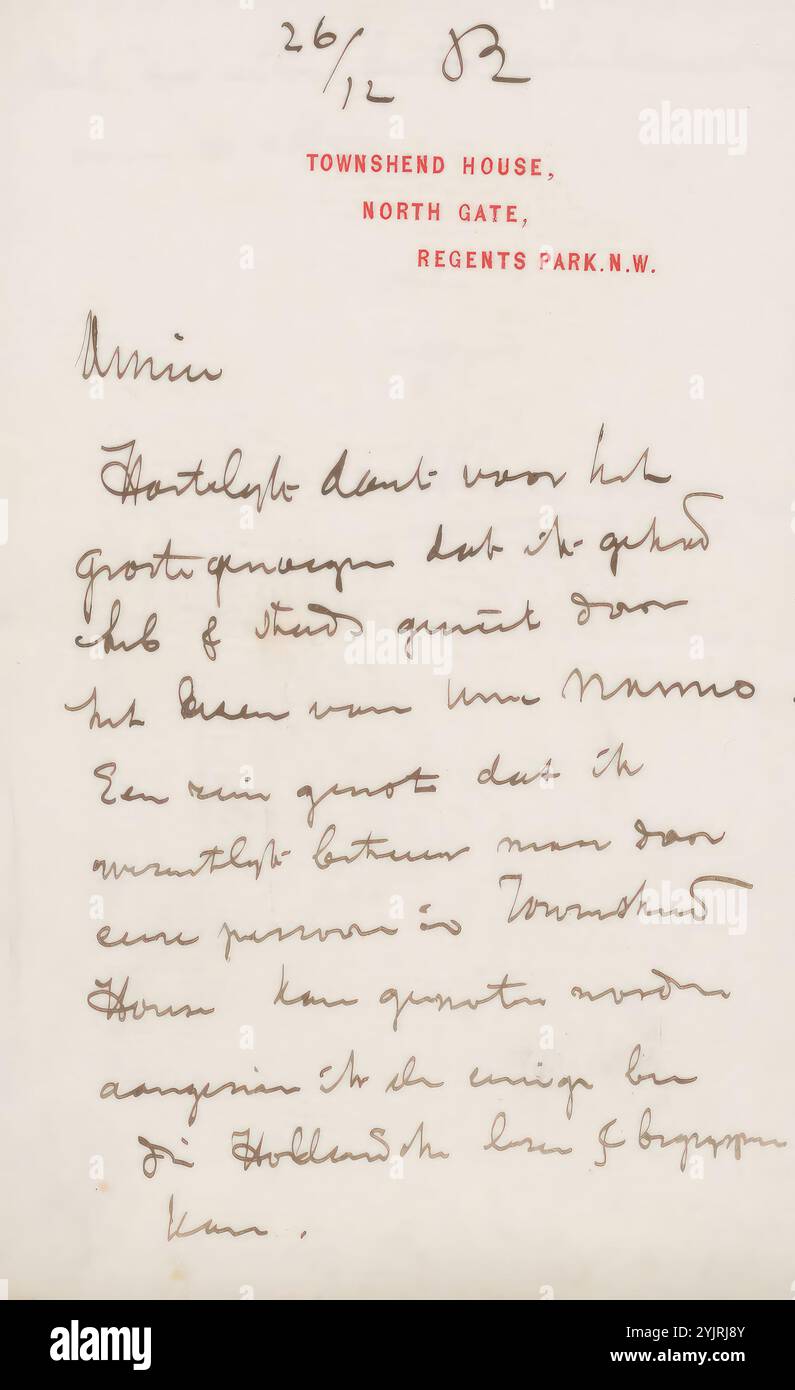 26/12 82
TOWNSHEND HOUSE,
NORTH GATE,
REGENTS PARK.N.W.
Amice
Hartelijk dank voor het
groote genoegen dat ik gehad
heb & steeds geniet door
het lezen van Uwe Nanno.
Een rein genot dat ik
door
eene persoon in Townshend
House kan genoten worden
aangezien ik de eenige ben
die Hollandsche lezen & begrypen
kan.
alamy
alamy
Image ID: 2YJRJ8Y
www.alamy.com